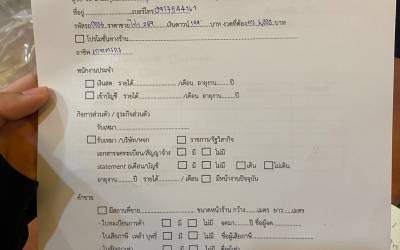 ที่อยู่ เบอร์โทร
รหัสรถ ราคาขาย เงินดาวน์ บาท งวดที่ต้อง บาท
โปรโมชั่นทางร้าน
อาชีพ เกษตรกร
พนักงานประจำ
เงินสด รายได้ /เดือน อายุงาน ปี
เข้าบัญชี รายได้ /เดือน อายุงาน ปี
กิจการส่วนตัว / ธุระกิจส่วนตัว
รับเหมา
รับเหมา /บริษัท/หจก ราชการ/รัฐวิสาหกิจ
เอกสารจดทะเบียน/สัญญาจ้าง มี ไม่มี
statement 6เดือน/บัญชี มี ไม่มี เดิน ไม่เดิน
อายุงาน ปี รายได้ / เดือน มีหน้างานปัจจุบัน
ค้าขาย
มีสถานที่ขาย ขนาดหน้าร้าน กว้าง เมตร ยาว เมตร
- ใบทะเบียนการค้า มี ไม่มี จดมา ปี ชื่อผู้จด
- ใบเสียภาษี เหล้า บุหรี่ มี ไม่มี ชื่อผู้เสียภาษี